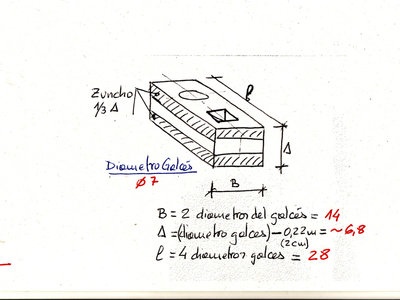 Zuncho
1/3 Δ
l
Δ
Diametro Galcés
Ø 7
B
B = 2 diametros del galcés = 14
Δ = (diametro galces) - 0,22m = ~6,8
(2cm)
l = 4 diametros galces = 28